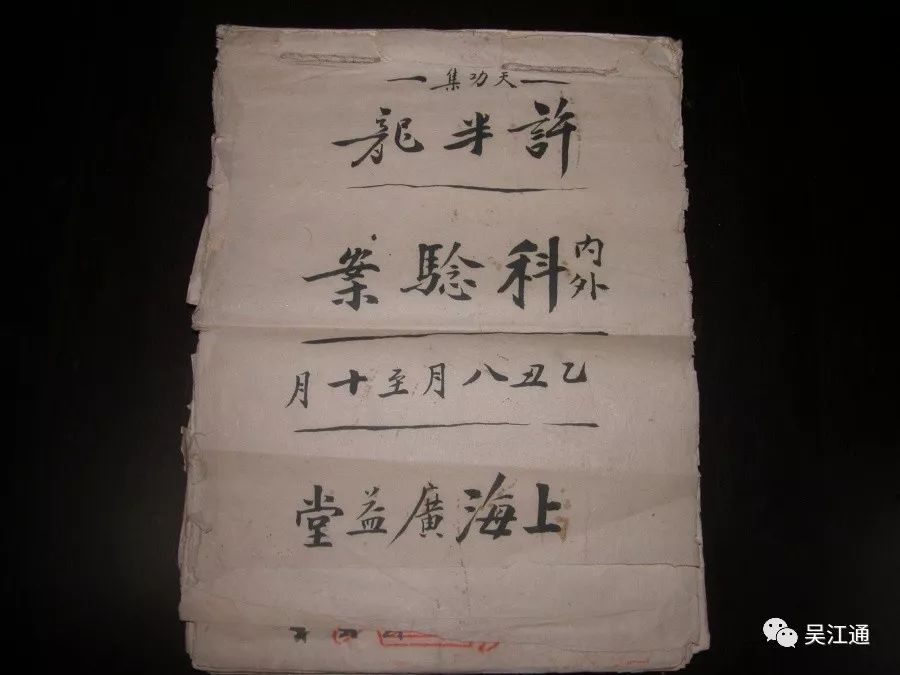 天功集
許半龍
内外科騐案
乙丑八月至十月
上海廣益堂
吴江通